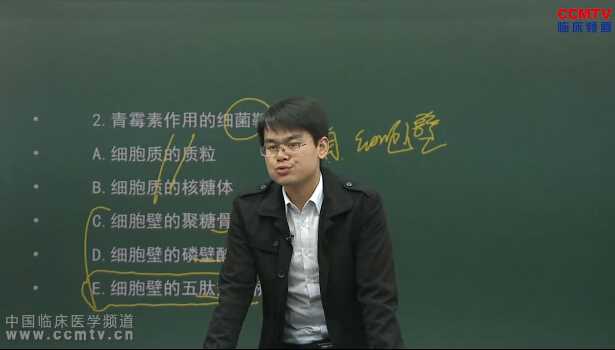 CCMTV
临床频道
2.青霉素作用的细菌
细胞壁
A.细胞质的质粒
B.细胞质的核糖体
C.细胞壁的聚糖骨
D.细胞壁的磷壁酸
E.细胞壁的五肽
中国临床医学频道
www.ccmtv.cn